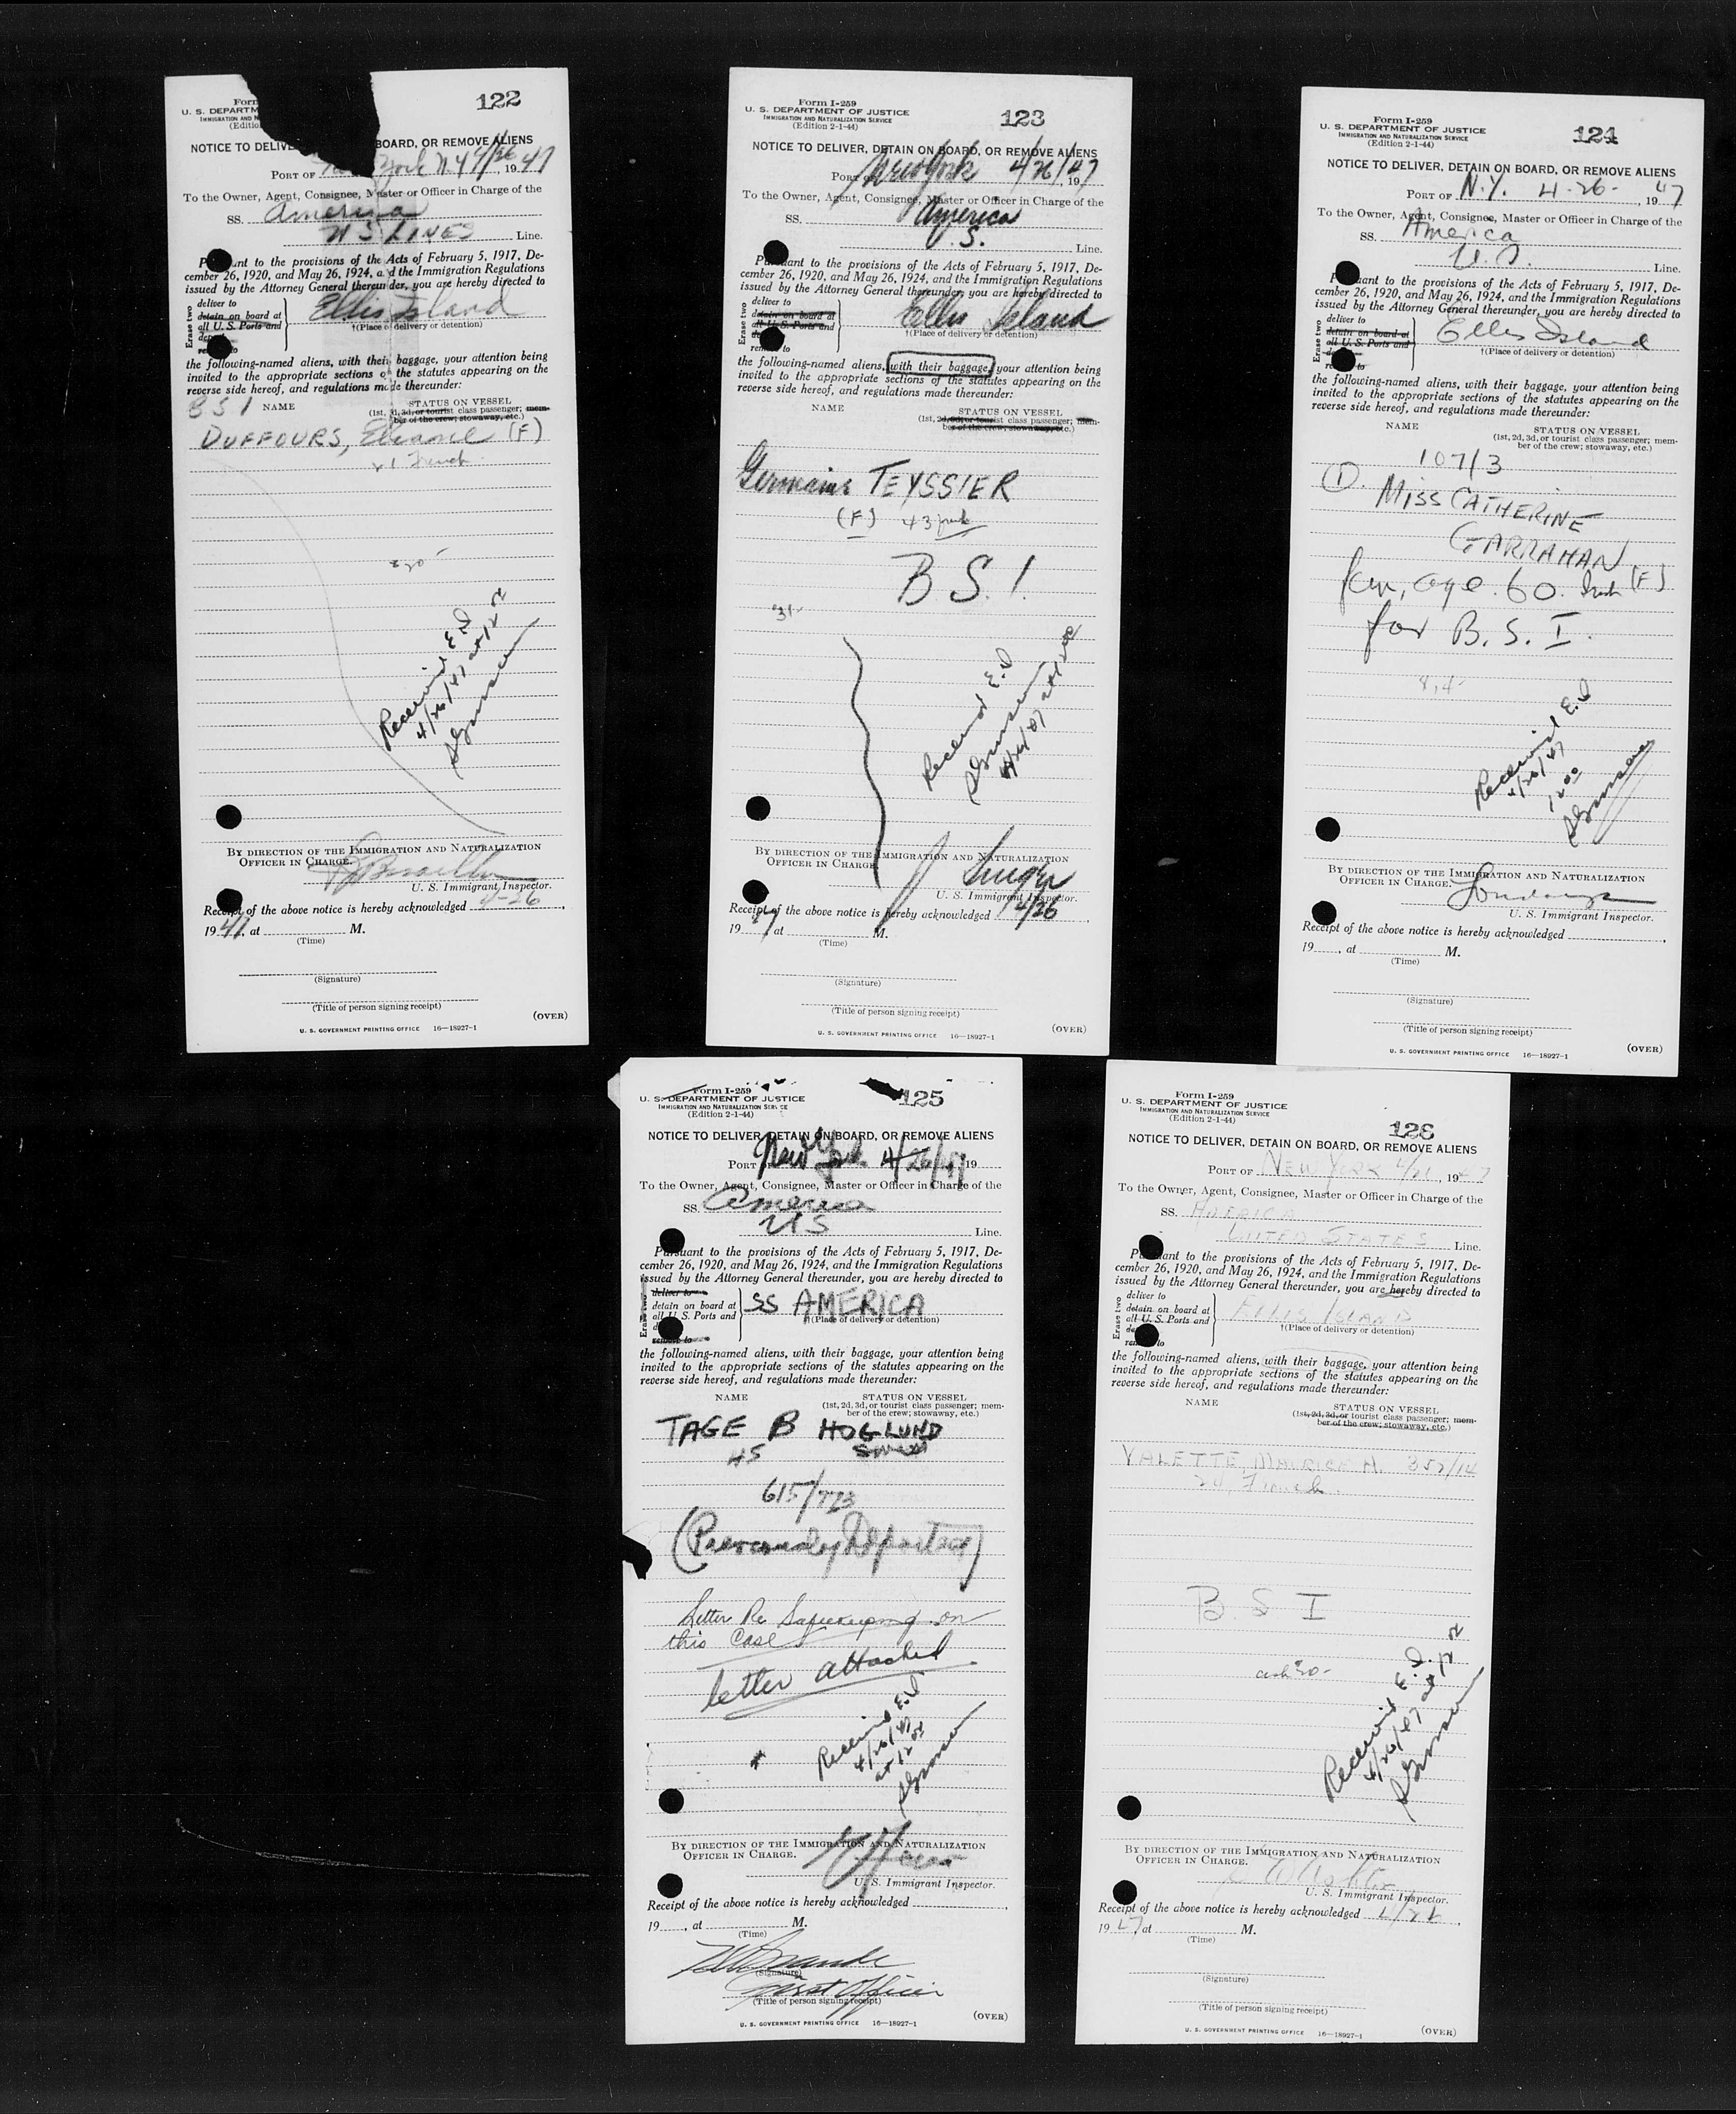 Form
122
U. S. DEPARTM
IMMIGRATION AND N
(Edition
NOTICE TO DELIVE BOARD, OR REMOVE ALIENS
PORT OF York N.Y 4/26, 1947
To the Owner, Agent, Consignee, Master or Officer in Charge of the
SS. America
U S LINES Line.
P ant to the provisions of the Acts of February 5, 1917, De-
cember 26, 1920, and May 26, 1924, and the Immigration Regulations
issued by the Attorney General thereunder, you are hereby directed to
Erase two
deliver to
detain on board at
all U. S. Ports and
de
re to
Ellis Island
†(Place of delivery or detention)
the following-named aliens, with their baggage, your attention being
invited to the appropriate sections of the statutes appearing on the
reverse side hereof, and regulations made thereunder:
B S I NAME STATUS ON VESSEL
(1st, 2d, 3d, or tourist class passenger; mem-
ber of the crew; stowaway, etc.)
DUFFOURS, (F)
French
Received E.I
4/26/47 at 12 00
BY DIRECTION OF THE IMMIGRATION AND NATURALIZATION
OFFICER IN CHARGE.
U. S. Immigrant Inspector.
Receipt of the above notice is hereby acknowledged 4-26,
1947, at M.
(Time)
(Signature)
(Title of person signing receipt)
(OVER)
U. S. GOVERNMENT PRINTING OFFICE 16—18927-1
Form I-259
123
U. S. DEPARTMENT OF JUSTICE
IMMIGRATION AND NATURALIZATION SERVICE
(Edition 2-1-44)
NOTICE TO DELIVER, DETAIN ON BOARD, OR REMOVE ALIENS
PORT OF New York 4/26/47, 19
To the Owner, Agent, Consignee, Master or Officer in Charge of the
SS. America
U.S. Line.
Pursuant to the provisions of the Acts of February 5, 1917, De-
cember 26, 1920, and May 26, 1924, and the Immigration Regulations
issued by the Attorney General thereunder, you are hereby directed to
Erase two
deliver to
detain on board at
all U. S. Ports and
de
rem to
Ellis Island
†(Place of delivery or detention)
the following-named aliens, with their baggage, your attention being
invited to the appropriate sections of the statutes appearing on the
reverse side hereof, and regulations made thereunder:
NAME STATUS ON VESSEL
(1st, 2d, 3d, or tourist class passenger; mem-
ber of the crew; stowaway, etc.)
Germaine TEYSSIER
(F) 43
B S I
31-
Received E.I
4/26/47 at 12 00
BY DIRECTION OF THE IMMIGRATION AND NATURALIZATION
OFFICER IN CHARGE.
J Singer
U. S. Immigrant Inspector.
Receipt of the above notice is hereby acknowledged 4/26,
1947, at M.
(Time)
(Signature)
(Title of person signing receipt)
(OVER)
U. S. GOVERNMENT PRINTING OFFICE 16—18927-1
Form I-259
124
U. S. DEPARTMENT OF JUSTICE
IMMIGRATION AND NATURALIZATION SERVICE
(Edition 2-1-44)
NOTICE TO DELIVER, DETAIN ON BOARD, OR REMOVE ALIENS
PORT OF N.Y. 4-26-, 1947
To the Owner, Agent, Consignee, Master or Officer in Charge of the
SS. America
U.S. Line.
P ant to the provisions of the Acts of February 5, 1917, De-
cember 26, 1920, and May 26, 1924, and the Immigration Regulations
issued by the Attorney General thereunder, you are hereby directed to
Erase two
deliver to
detain on board at
all U. S. Ports and
re to
Ellis Island
†(Place of delivery or detention)
the following-named aliens, with their baggage, your attention being
invited to the appropriate sections of the statutes appearing on the
reverse side hereof, and regulations made thereunder:
NAME STATUS ON VESSEL
(1st, 2d, 3d, or tourist class passenger; mem-
ber of the crew; stowaway, etc.)
107/3
(1). MISS CATHERINE
GARRAHAN
fem, age 60. Irish (F)
for B. S. I.
Received E.I
4/26/47
12 00
BY DIRECTION OF THE IMMIGRATION AND NATURALIZATION
OFFICER IN CHARGE.
U. S. Immigrant Inspector.
Receipt of the above notice is hereby acknowledged ,
19 , at M.
(Time)
(Signature)
(Title of person signing receipt)
(OVER)
U. S. GOVERNMENT PRINTING OFFICE 16—18927-1
Form I-259
125
U. S. DEPARTMENT OF JUSTICE
IMMIGRATION AND NATURALIZATION SERVICE
(Edition 2-1-44)
NOTICE TO DELIVER, DETAIN ON BOARD, OR REMOVE ALIENS
PORT New York 4/26/47 19
To the Owner, Agent, Consignee, Master or Officer in Charge of the
SS. America
US Line.
Pursuant to the provisions of the Acts of February 5, 1917, De-
cember 26, 1920, and May 26, 1924, and the Immigration Regulations
issued by the Attorney General thereunder, you are hereby directed to
Erase two
deliver to
detain on board at
all U. S. Ports and
d
remove to
SS AMERICA
†(Place of delivery or detention)
the following-named aliens, with their baggage, your attention being
invited to the appropriate sections of the statutes appearing on the
reverse side hereof, and regulations made thereunder:
NAME STATUS ON VESSEL
(1st, 2d, 3d, or tourist class passenger; mem-
ber of the crew; stowaway, etc.)
TAGE B HOGLUND
45
615/
(Previously Deported)
Letter Re Safekeeping on
this case
letter attached
Received E.I
4/26/47
at 12 00
BY DIRECTION OF THE IMMIGRATION AND NATURALIZATION
OFFICER IN CHARGE.
U. S. Immigrant Inspector.
Receipt of the above notice is hereby acknowledged ,
19 , at M.
(Time)
(Signature)
First Officer
(Title of person signing receipt)
(OVER)
U. S. GOVERNMENT PRINTING OFFICE 16—18927-1
Form I-259
U. S. DEPARTMENT OF JUSTICE
IMMIGRATION AND NATURALIZATION SERVICE
(Edition 2-1-44)
126
NOTICE TO DELIVER, DETAIN ON BOARD, OR REMOVE ALIENS
PORT OF NEW YORK 4/26, 1947
To the Owner, Agent, Consignee, Master or Officer in Charge of the
SS. AMERICA
UNITED STATES Line.
P ant to the provisions of the Acts of February 5, 1917, De-
cember 26, 1920, and May 26, 1924, and the Immigration Regulations
issued by the Attorney General thereunder, you are hereby directed to
Erase two
deliver to
detain on board at
all U. S. Ports and
de
rem to
ELLIS ISLAND
†(Place of delivery or detention)
the following-named aliens, with their baggage, your attention being
invited to the appropriate sections of the statutes appearing on the
reverse side hereof, and regulations made thereunder:
NAME STATUS ON VESSEL
(1st, 2d, 3d, or tourist class passenger; mem-
ber of the crew; stowaway, etc.)
VALETTE MAURICE A. 352/14
French
B. S I
Received E.I.
4/26/47 at 12 00
BY DIRECTION OF THE IMMIGRATION AND NATURALIZATION
OFFICER IN CHARGE.
U. S. Immigrant Inspector.
Receipt of the above notice is hereby acknowledged 4/26,
1947, at M.
(Time)
(Signature)
(Title of person signing receipt)
(OVER)
U. S. GOVERNMENT PRINTING OFFICE 16—18927-1